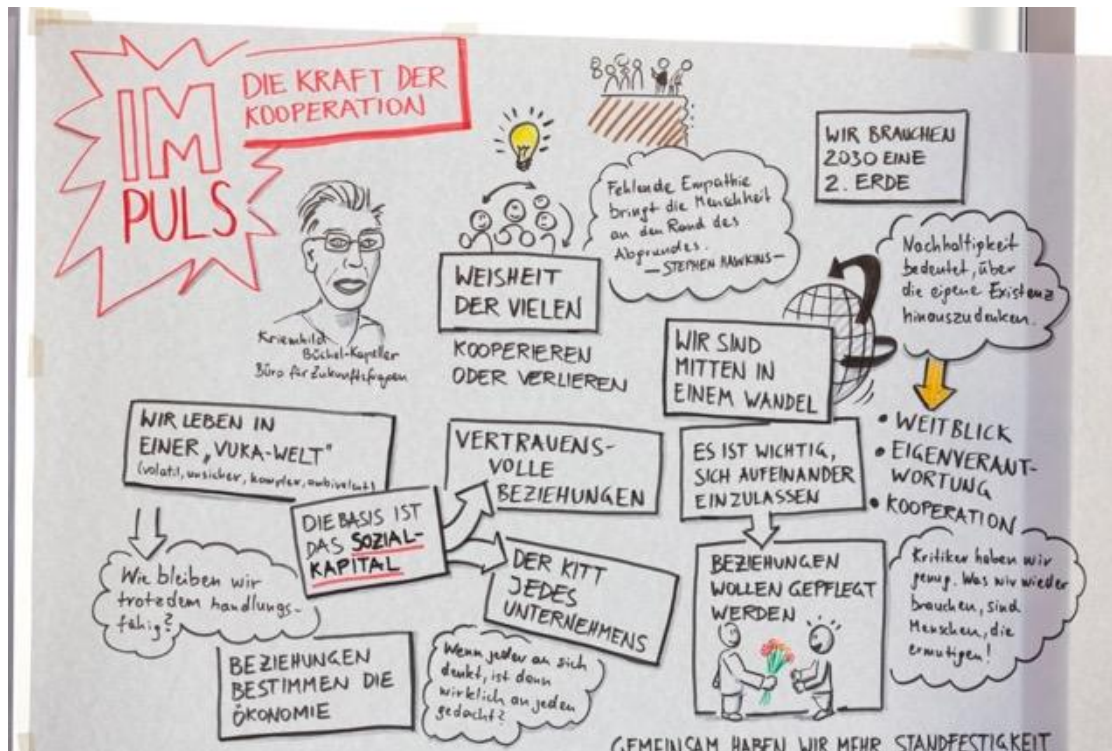 IM
PULS
DIE KRAFT DER
KOOPERATION
Kriemhild
Büchel-Kapeller
Büro für Zukunftsfragen
WEISHEIT
DER VIELEN
KOOPERIEREN
ODER VERLIEREN
Fehlende Empathie
bringt die Menschheit
an den Rand des
Abgrundes.
— STEPHEN HAWKINS —
WIR BRAUCHEN
2030 EINE
2. ERDE
Nachhaltigkeit
bedeutet, über
die eigene Existenz
hinauszudenken.
WIR SIND
MITTEN IN
EINEM WANDEL
• WEITBLICK
• EIGENVERANT-
WORTUNG
• KOOPERATION
WIR LEBEN IN
EINER „VUKA-WELT"
(volatil, unsicher, komplex, ambivalent)
Wie bleiben wir
trotzdem handlungs-
fähig?
DIE BASIS IST
DAS SOZIAL-
KAPITAL
VERTRAUENS-
VOLLE
BEZIEHUNGEN
DER KITT
JEDES
UNTERNEHMENS
ES IST WICHTIG,
SICH AUFEINANDER
EINZULASSEN
BEZIEHUNGEN
WOLLEN GEPFLEGT
WERDEN
Kritiker haben wir
genug. Was wir wieder
brauchen, sind
Menschen, die
ermutigen!
BEZIEHUNGEN
BESTIMMEN DIE
ÖKONOMIE
Wenn jeder an sich
denkt, ist dann
wirklich an jeden
gedacht?
GEMEINSAM HABEN WIR MEHR STANDFESTIGKEIT